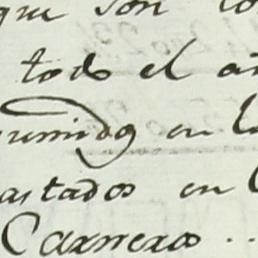 que son co
todo el añ
primidos en la
astados en
Carneros . .